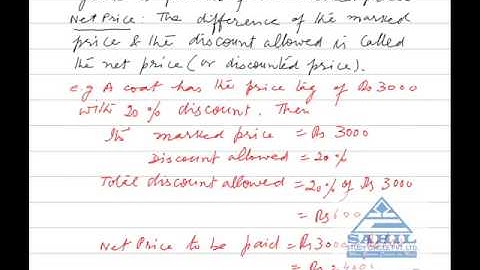 Net Price : The difference of the marked
price & the discount allowed is called
the net price (or discounted price).
e.g A coat has the price tag of Rs 3000
with 20% discount. Then
Its marked price = Rs 3000
Discount allowed = 20%
Total discount allowed = 20% of Rs 3000
= Rs 600
Net Price to be paid = Rs 3000
SAHIL